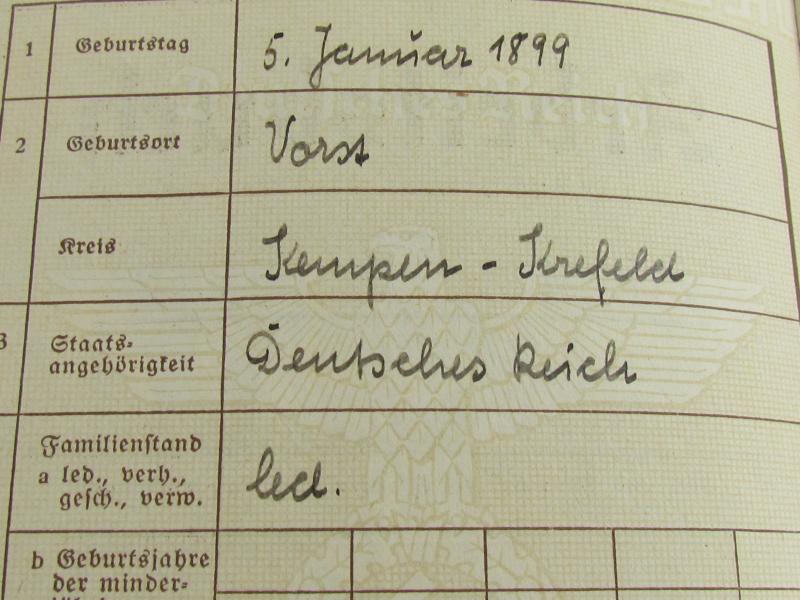 1 Geburtstag 5. Januar 1899
2 Geburtsort Vorst
Kreis Kempen - Krefeld
3 Staats-
angehörigkeit Deutsches Reich
Familienstand
a led., verh.,
gesch., verw. led.
b Geburtsjahre
der minder-